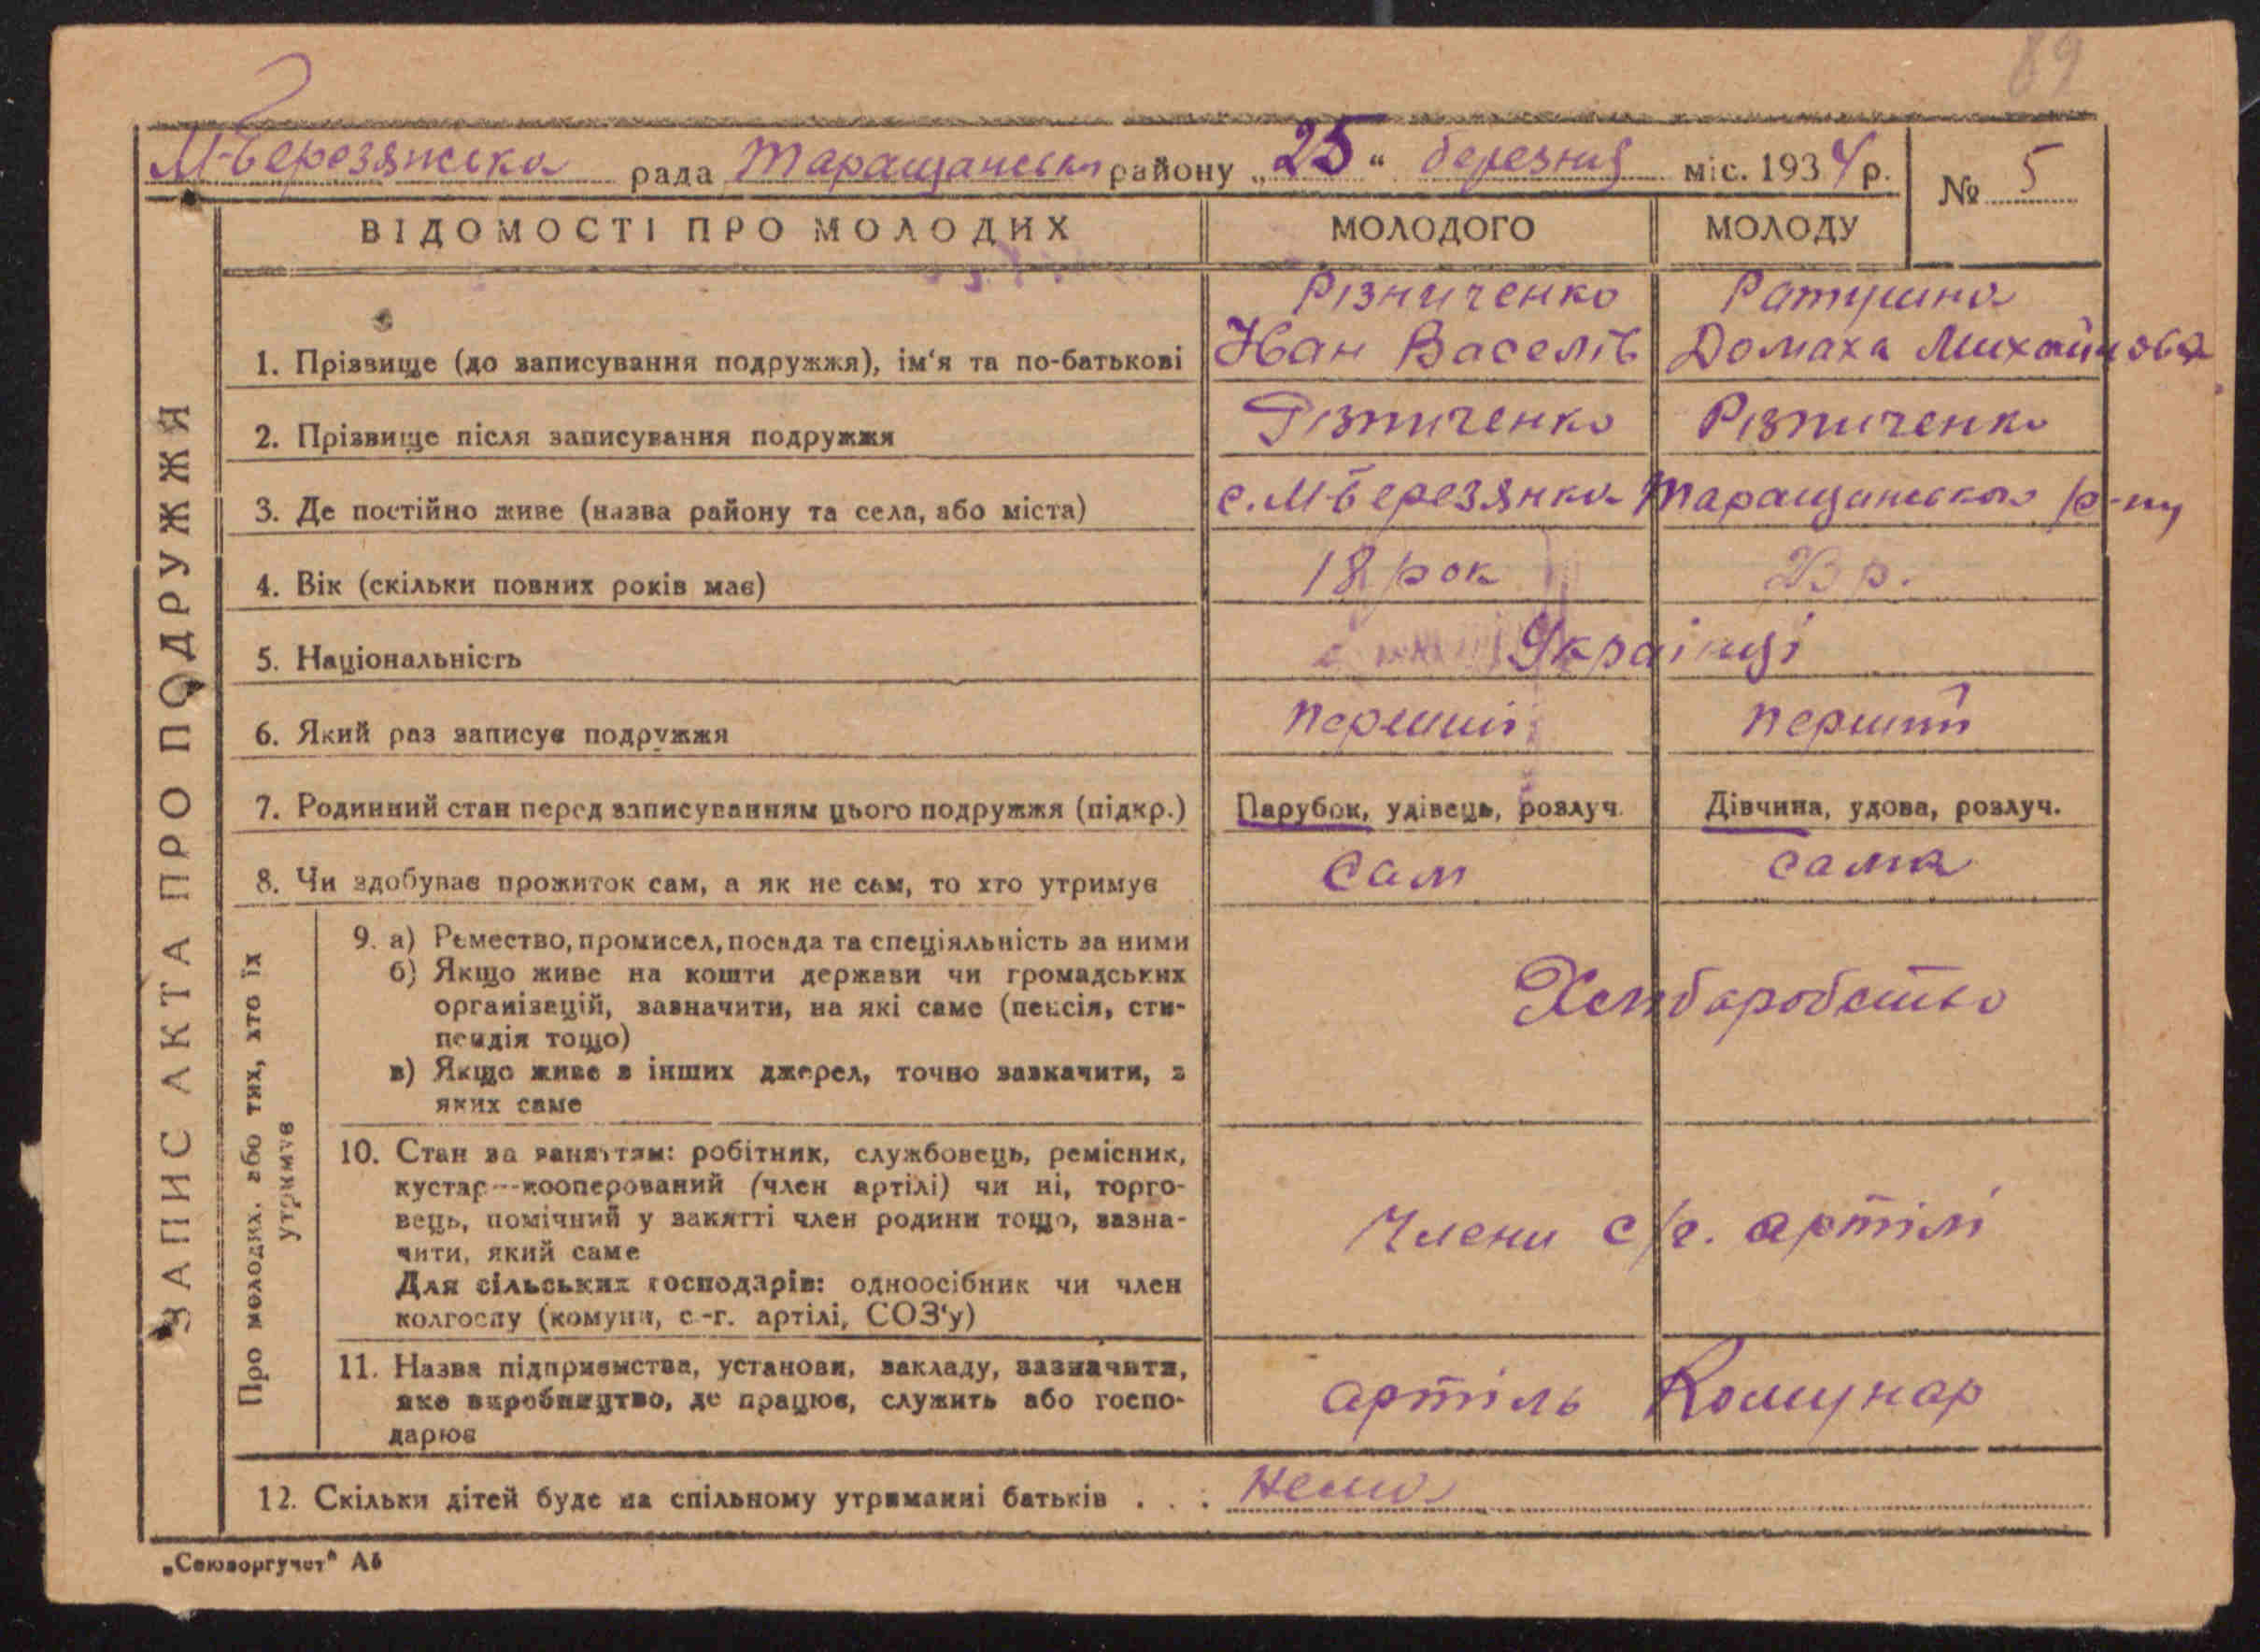 89
М-Березянська рада Таращанськ району „25“ березня міс. 1934 р.
№ 5
ВІДОМОСТІ ПРО МОЛОДИХ МОЛОДОГО МОЛОДУ
ЗАПИС АКТА ПРО ПОДРУЖЖЯ
Різниченко Ратушна
1. Прізвище (до записування подружжя), ім‘я та по-батькові Іван Васелів Домаха Михайлова
2. Прізвище після записування подружжя Різниченко Різниченко
3. Де постійно живе (назва району та села, або міста) с. М-Березянка Таращанського р-ну
4. Вік (скільки повних років має) 18 рок 23 р.
5. Національність Українці
6. Який раз записує подружжя перший перший
7. Родинний стан перед записуванням цього подружжя (підкр.) Парубок, удівець, розлуч. Дівчина, удова, розлуч.
8. Чи здобуває прожиток сам, а як не сам, то хто утримує сам сама
Про молодих, або тих, хто їх
утримує
9. а) Ремество, промисел, посада та спеціяльність за ними
б) Якщо живе на кошти держави чи громадських
організацій, зазначити, на які саме (пенсія, сти-
пендія тощо)
в) Якщо живе з інших джерел, точно зазначити, з
яких саме
Хембаробство
10. Стан за заняттям: робітник, службовець, ремісник,
кустар—кооперований (член артілі) чи ні, торго-
вець, помічний у занятті член родини тощо, зазна-
чити, який саме
Для сільських господарів: одноосібник чи член
колгоспу (комуни, с.-г. артілі, СОЗ‘у)
Члени с/г. артілі
11. Назва підприємства, установи, закладу, зазначити,
яке виробництво, де працює, служить або госпо-
дарює
артіль Комунар
12. Скільки дітей буде на спільному утриманні батьків . . . Нема
„Союзоргучет“ А5